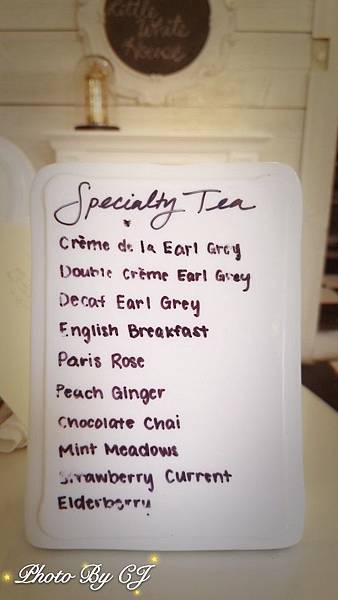 Little White House
Specialty Tea
Crème de la Earl Grey
Double Crème Earl Grey
Decaf Earl Grey
English Breakfast
Paris Rose
Peach Ginger
Chocolate Chai
Mint Meadows
Strawberry Current
Elderberry
Photo By CJ